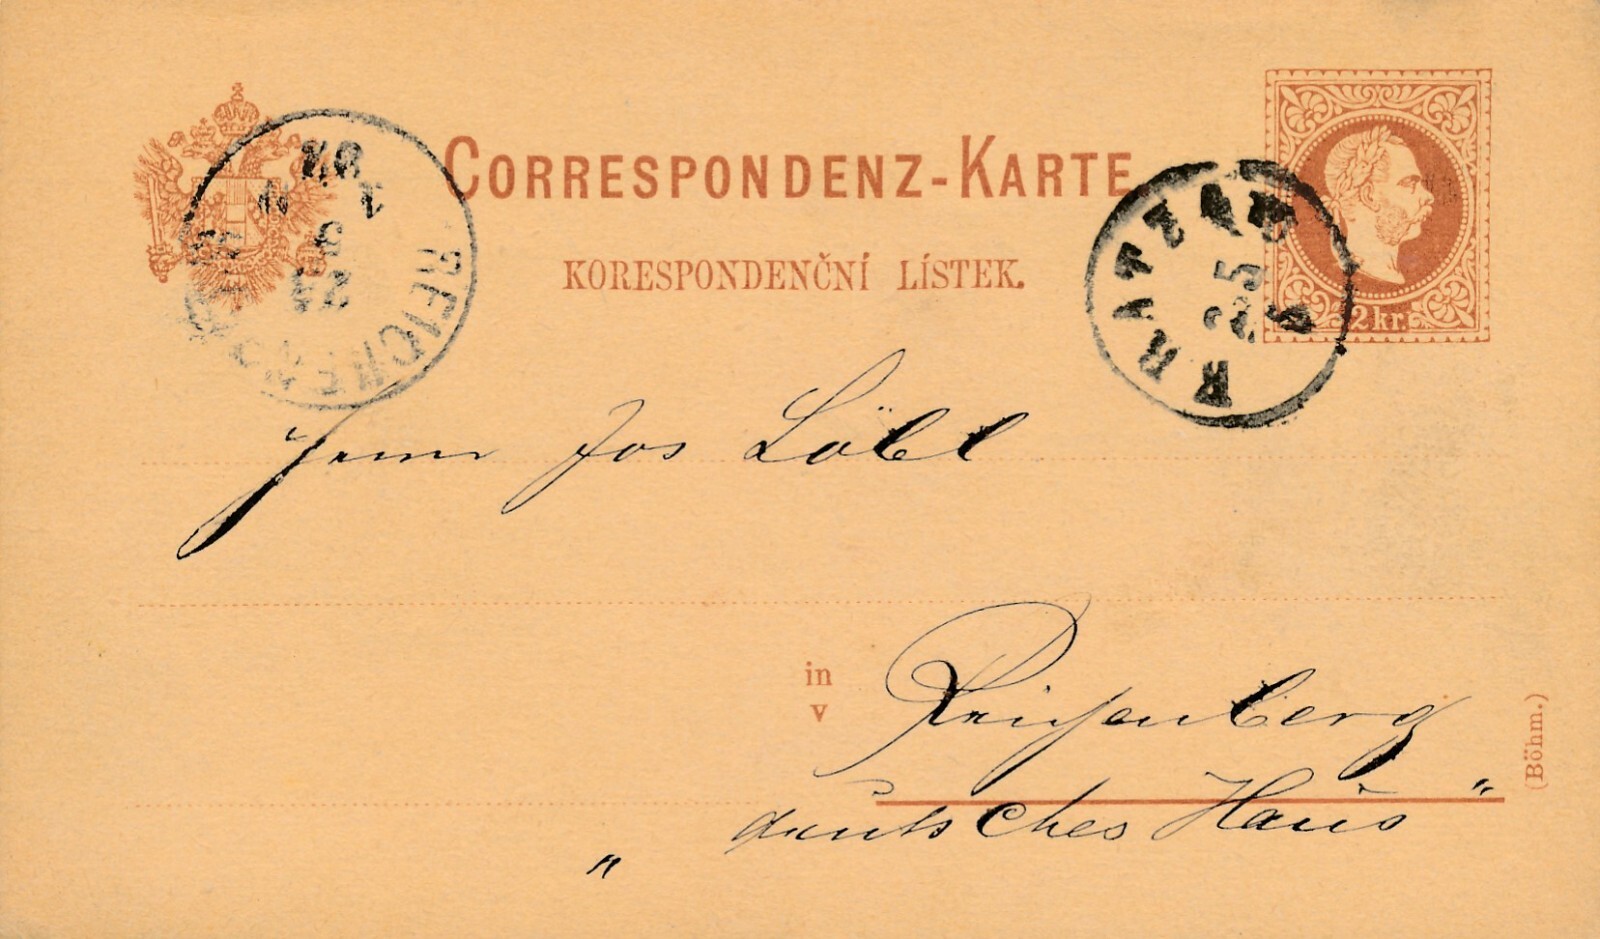 CORRESPONDENZ-KARTE
KORESPONDENČNÍ LÍSTEK.
2 kr.
KRATZAU
25
4
REICHENBERG
Herrn Jos Löbl
in
v
Reichenberg
„deutsches Haus"
(Böhm.)